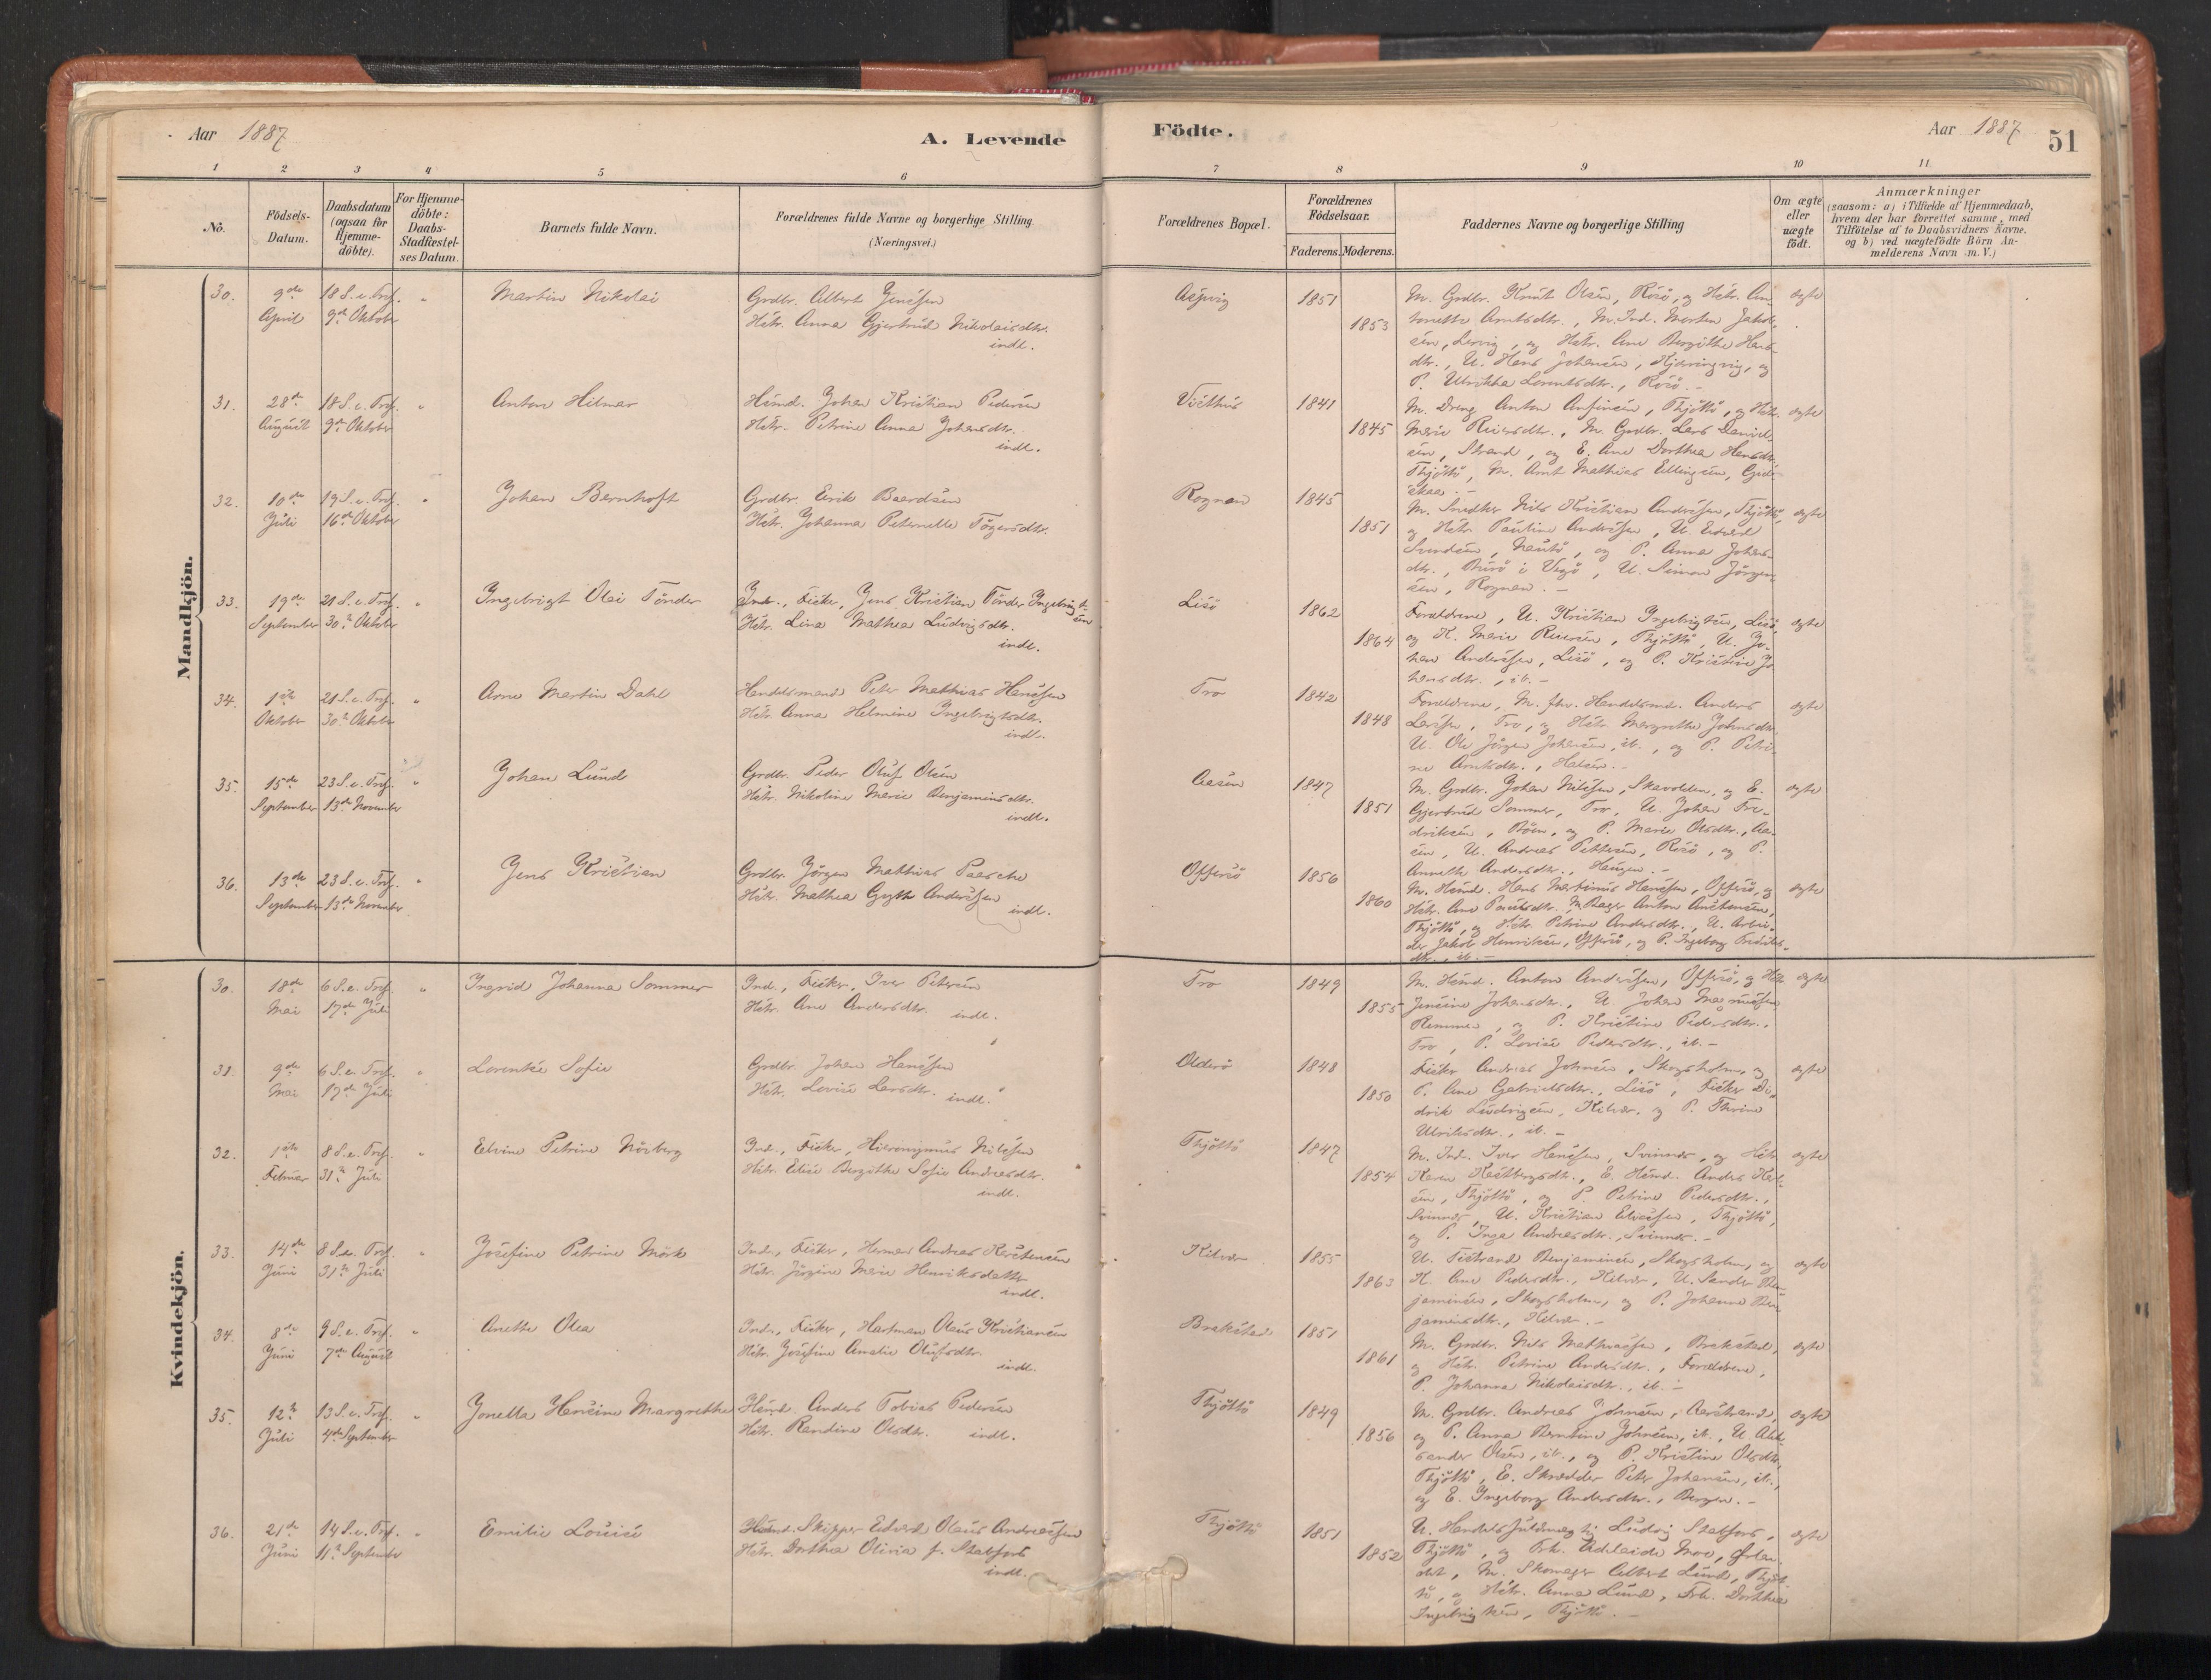 Aar 1887
A. Levende
Födte.
Aar 1887
51
1 2 3 4 5 6 7 8 9 10 11
No.
Födsels-Datum.
Daabsdatum (ogsaa for Hjemme-döbte).
For Hjemme-döbte: Daabs-Stadfæstel-ses Datum.
Barnets fulde Navn.
Forældrenes fulde Navne og borgerlige Stilling
(Næringsvei.)
Forældrenes Bopæl.
Forældrenes Födselsaar.
Faderens. Moderens.
Faddernes Navne og borgerlige Stilling
Om ægte eller uægte födt.
Anmærkninger
(saasom: a) i Tilfælde af Hjemmedaab,
hvem der har forrettet samme, med
Tilföielse af to Daabsvidners Navne,
og b) ved uægtefödte Börn An-
melderens Navn m.V.)
Mandkjön.
30. 9de April 18 S. e. Tref. 9de Oktober " Martin Nikolai
Grdbr. Albert Jenssen
Hstr. Anna Gjertrud Nikolaisdtr.
indl.
1851 1853
M. Grdbr. Knut Olsen, Rosö, og Hstr. An-
tonette Arntsdtr., M. Ind. Morten Jakob-
sen, Lervig, og Hstr. Ane Bergitte Hans-
dtr., U. Hans Johansen, Hjaringvig, og
P. Ulrikka Lorentsdtr., Rosö. -
ægte
31. 28de August 18 S. e. Tref. 9de Oktober " Anton Hilmar
Hsmd. Johan Kristian Pedersen
Hstr. Petrine Anna Johansdtr.
indl.
1841 1845
M. Dreng Anton Ansinsen, Thjöttö, og Hstr.
Marie Reiersdtr., M. Grdbr. Lars Daniel-
sen, Strand, og E. Ane Dorthea Hansdtr.
Thjöttö, M. Arnt Mathias Ellingsen,
ægte
32. 10de Juli 19 S. e. Tref. 16de Oktober " Johan Bernhoft
Grdbr. Eirik Baardsen
Hstr. Johanna Peternelle Tögersdtr.
Rognan
1845 1851
M. Snedker Nils Kristian Anderssen, Thjöttö,
og Hstr. Pauline Anderssen, U. Edvard
Svendsen, og P. Anna Johans-
dtr., Busö i Vegö, U. Simon Jörgen-
sen, Rognan. -
ægte
33. 19de September 21 S. e. Tref. 30te Oktober " Ingebrigt Olai Tönder
Ind., Fisker, Jens Kristian Tönder Ingebrigt-
sen
Hstr. Lina Mathea Ludvigsdtr.
indl.
Lisö
1862 1864
Forældrene, U. Kristian Ingebrigtsen, Lisö,
og K. Marie Reiersen, Thjöttö, U. Jo-
han Anderssen, Lisö, og P. Kristine Jo-
hansdtr., ib. -
ægte
34. 1ste Oktober 21 S. e. Tref. 30te Oktober " Arne Martin Dahl
Handelsmand Peter Mathias Hanssen
Hstr. Anna Helmine Ingebrigtsdtr.
indl.
Tro
1842 1848
Forældrene, M. fhv. Handelsmd. Anders
Larssen, Tro, og Hstr. Margrethe Johnsdtr.
U. Ole Jörgen Johansen, ib., og P. Petri-
ne Arntsdtr., Halsen. -
ægte
35. 15de September 23 S. e. Tref. 13de November " Johan Lund
Grdbr. Peder Oluf Olsen
Hstr. Nikoline Marie Benjaminsdtr.
indl.
Aasen
1847 1851
M. Grdbr. Johan Nilssen, Skavolden, og E.
Gjertrud Sommer, Tro, U. Johan Fre-
driksen, Böen, og P. Marie Olsdtr., Aa-
sen, U. Andreas Pettersen, Rosö, og P.
Annette Andersdtr., Haugen. -
ægte
36. 13de September 23 S. e. Tref. 13de November " Jens Kristian
Grdbr. Jörgen Mathias Paasche
Hstr. Mathea Gryth Anderssen
indl.
Offersö
1856 1860
M. Hsmd. Hans Martinus Hanssen, Offersö, og
Hstr. Ane Paulsdtr., M. Bager Anton Austensen,
Thjöttö, og Hstr. Petrine Andersdtr., U. Arbei-
der Jakob Henriksen, Offersö, og P. Ingeborg Fredriks-
dtr., ib. -
ægte
Kvindekjön.
30. 18de Mai 6 S. e. Tref. 17de Juli " Ingrid Johanna Sommer
Ind., Fisker, Iver Petersen
Hstr. Ane Andersdtr. indl.
Tro
1849 1855
M. Hsmd. Anton Anderssen, Offersö, og Hstr.
Jensine Johansdtr., U. Johan Magnussen,
Remmen, og P. Kristine Pedersdtr.,
Tro, P. Lovise Pedersdtr., ib. -
ægte
31. 9de Mai 6 S. e. Tref. 17de Juli " Lorentse Sofie
Grdbr. Johan Hanssen
Hstr. Lovise Larsdtr. indl.
Olderö
1848 1850
Fisker Andreas Johnsen, Skogsholm, og
P. Ane Gabrielsdtr., Lisö, Fisker Di-
drik Ludvigsen, Kilvær, og P. Thrine
Ulriksdtr., ib. -
ægte
32. 1ste Februar 8 S. e. Tref. 31te Juli " Elvine Petrine Norberg
Ind., Fisker, Hieronymus Nilssen
Hstr. Elise Bergitte Sofie Andreasdtr.
indl.
Thjöttö
1847 1854
M. Ind. Iver Hanssen, Svinnes, og Hstr.
Karen Kastbergsdtr., E. Hsmd. Anders Karl-
sen, Thjöttö, og P. Petrine Pedersdtr.,
Svinnes, U. Kristian Edvardsen, Thjöttö,
og P. Inga Andreasdtr., Svinnes. -
ægte
33. 14de Juni 8 S. e. Tref. 31te Juli " Josefine Petrine Mörk
Ind., Fisker, Herman Andreas Kerstensen
Hstr. Jörgine Marie Henriksdatter
indl.
Kilvær
1855 1863
U. Benjaminsen, Skogsholm, og
K. Ane Pedersdtr., Kilvær, U. Sander Ben-
jaminsen, Skogsholm, og P. Johanna Ben-
jaminsdtr., Kilvær. -
ægte
34. 8de Juni 9 S. e. Tref. 7de August " Anette Olea
Ind., Fisker, Hartman Olaus Kristiansen
Hstr. Josefine Amalie Olufsdtr.
indl.
Brakstad
1851 1861
M. Grdbr. Nils Mathiassen, Brakstad,
og Hstr. Petrine Andersdtr., Forældrene,
P. Johanna Nikolaisdtr., ib. -
ægte
35. 12te Juli 13 S. e. Tref. 4de September " Jonetta Hansine Margrethe
Hsmd. Anders Tobias Pedersen
Hstr. Randine Olsdtr. indl.
Thjöttö
1849 1856
M. Grdbr. Andreas Johnsen, Aarstrand,
og P. Anna Berntine Johnsen, ib., U. Alek-
sander Olsen, ib., og P. Kristine Olsdtr.,
Thjöttö, E. Skrædder Peter Johansen, ib.,
og E. Ingeborg Andersdtr., Bergen. -
ægte
36. 21de Juni 14 S. e. Tref. 11te September " Emilie Louise
Hsmd. Skipper Edvard Olaus Andreassen
Hstr. Dorthea Olivia f. Stabfors
indl.
Thjöttö
1851 1852
U. Handelsfuldmægtig Ludvig Stabfors,
Thjöttö, og Frk. Adelaide Moe,
M. Skomager Albert Lund, Thjöt-
tö, og Hstr. Anna Lund, Frk. Dorthea
Ingebrigtsen, Thjöttö. -
ægte